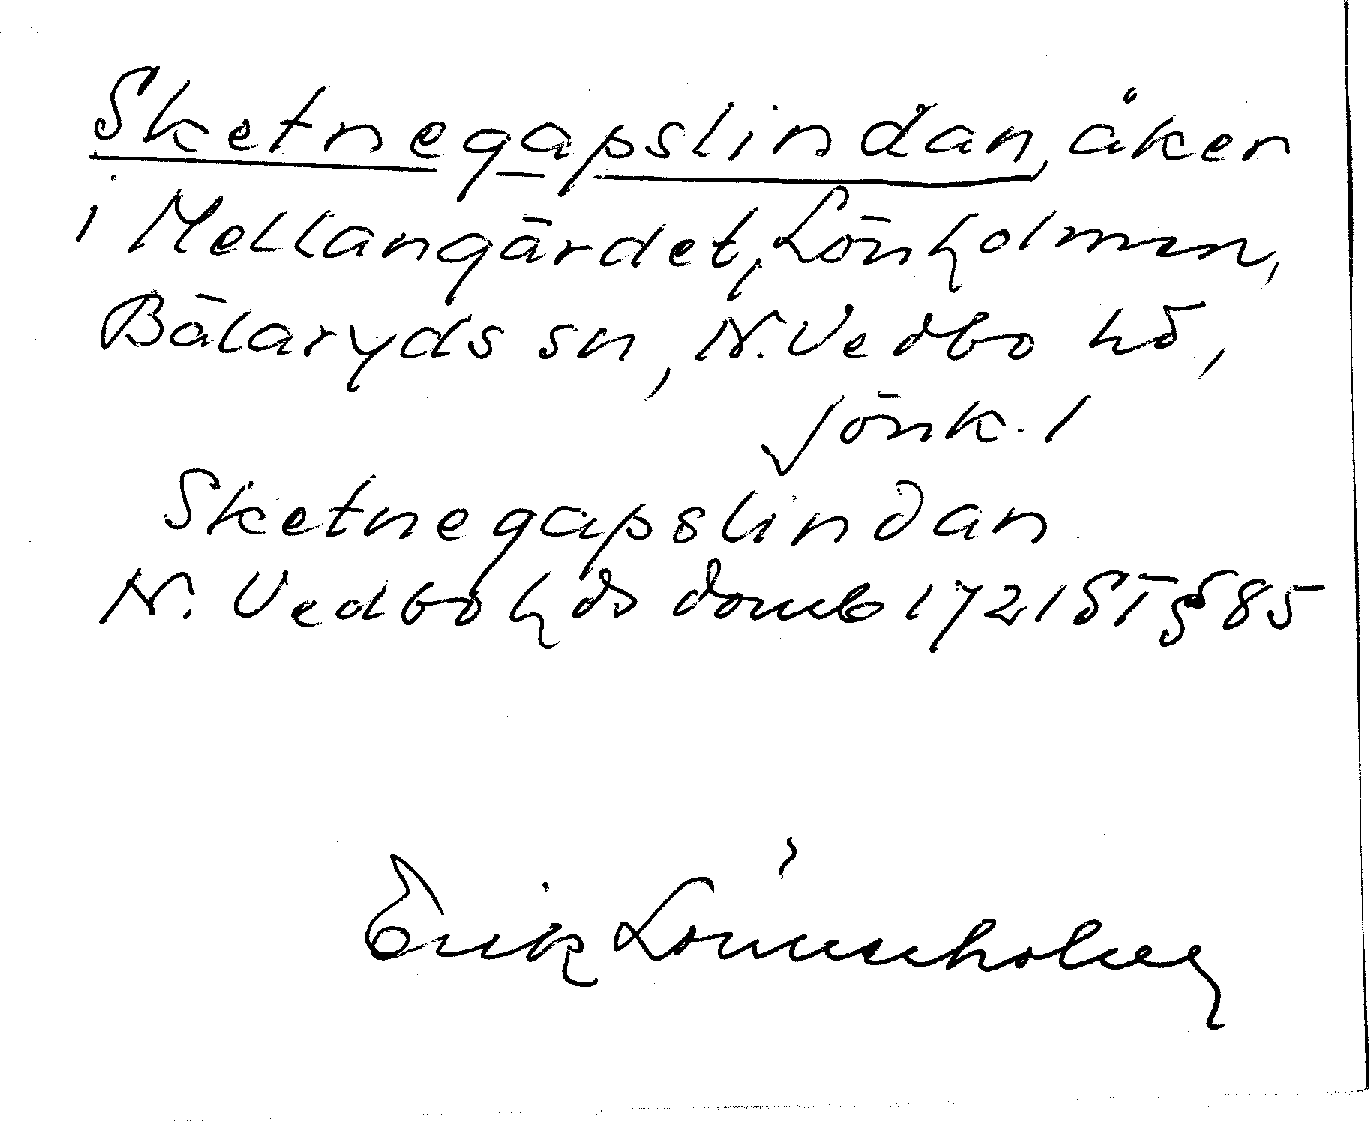 Sketnegapslindan, åker
i Mellangärdet, Lönholmen,
Bälaryds sn, N. Vedbo hd,
Jönk. l
Sketnegapslindan
N. Vedbo hds domb 1721 ST § 85
Erik Lönnerholm